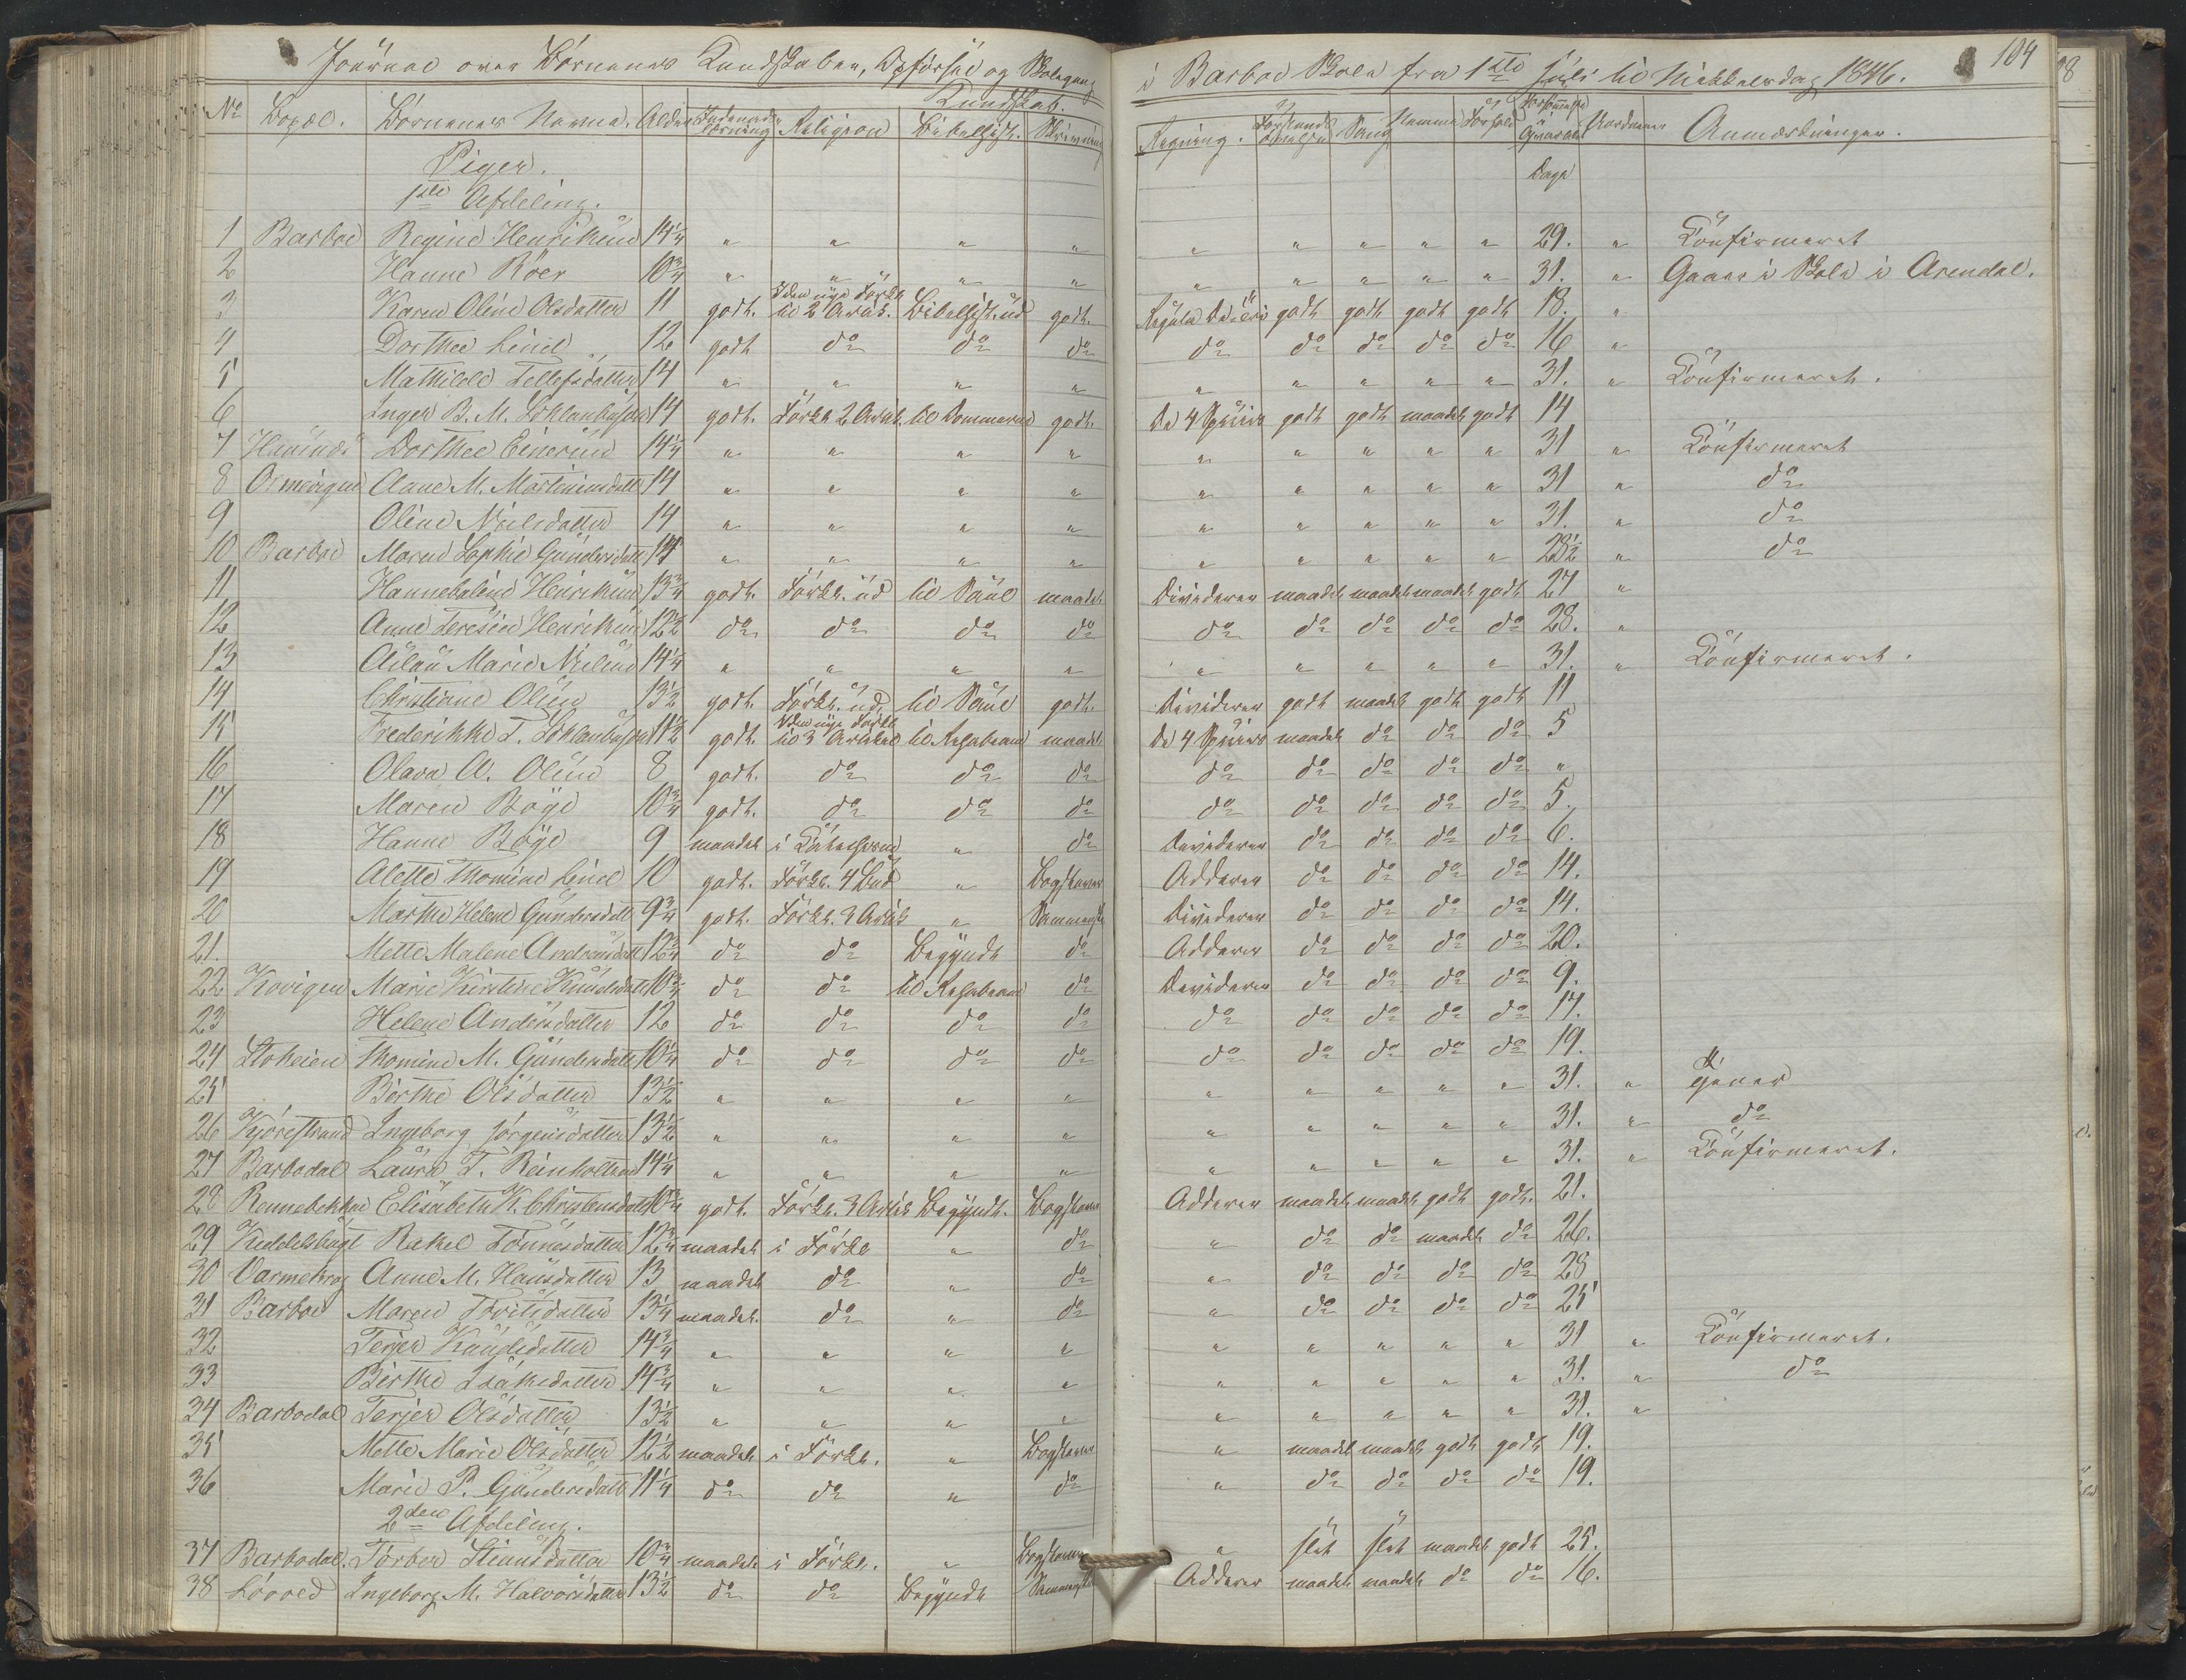 Journal over Børnenes Kundskaber, Opførsel og Skolegang i Barboe Skole fra 1ste Juli til Mikkelsdag 1846. 104
Kundskab.
No Bopæl. Børnenes Navne. Alder Indenadslæsning Religion Bibelhist. Skrivning Regning. Forstandsøvelse Sang Nemme Forhold Forsømmelse Anmærkninger.
Piger. Dage
1ste Afdeling.
1 Barboe Regine Henriksen 14¼ " " " " " " " " " 29. " Confirmeret
2 Hanne Röer 10¾ " " " " " " " " " 31. " Gaaer i Skole i Arendal.
3 Karen Oline Olsdatter 11 godt. I den nye Forkl. til 2 Artik. Bibelhist. ud godt. Regula De Tri godt godt godt godt 18. "
4 Dorthee Linel 12 godt do do do do do do do do 16 "
5 Mathilde Tellefsdatter 14 " " " " " " " " " 31. " Confirmeret.
6 Inger B. M. 14 godt. Forkl. 2 Artik. til Dommerne godt. De 4 Species godt godt maadel. godt 14
7 Dorthee 14¼ " " " " " " " " " 31 " Confirmeret
8 Aane M. 14 " " " " " " " " " 31 " do
9 Oline Nielsdatter 14 " " " " " " " " " 31. " do
10 Barboe Maren Sophie Gundersdatt 14 " " " " " " " " " 28½ " do
11 Hannebaline Henriksen 13¾ godt. Forkl. ud til Saul maadel. Dividerer maadel. maadel. maadel. godt 27 "
12 Anne Teresie Henriksen 12½ do do do do do do do do do 28. "
13 Marie Nielsen 14¼ " " " " " " " " " 31. " Confirmeret.
14 Christiane Olsen 13½ godt. Forkl. ud, til Saul godt. Dividerer godt maadel. godt godt 11
15 Frederikke T. 11½ godt. I den nye Forkl. til 3 Artikel til Rehabeam maadel. De 4 Species maadel. do do do 5
16 Olava A. Olsen 8 godt. do do do do do do do do "
17 Maren Bøye 10¾ godt. do do do do do do do do 5.
18 Hanne Bøye 9 maadel. i " do Dividerer do do do do 6.
19 Alette Thomine Linel 10 godt. Forkl. 4 Bud " Bogstaver Adderer do do do do 14.
20 Marthe Helene Gundersdatt 9¾ godt. Forkl. 3 Artik " Dividerer do do do do 14.
21. Mette Malene Andersdatt 12¾ do do Begyndt do Adderer do do do do 20.
22 Marie Kirstine Knudsdatt 10¾ do do til Rehabeam do Dividerer do do do do 9.
23 Helene Andersdatter 12 do do do do do do do do do 17.
24 Stoheien Thomine M. Gundersdatt 10¼ do do do do do do do do do 19.
25 Birthe Olsdatter 13½ " " " " " " " " " 31. " tjener
26 Ingeborg Jørgensdatter 13½ " " " " " " " " " 31. " do
27 Barbodal Laura T. Reinholtsen 14¼ " " " " " " " " " 31. " Confirmeret.
28 Rennebekken Elisabeth K. Christensdatt 10¾ godt. Forkl. 3 Artik Begyndt. Bogstaver Adderer maadel. maadel. godt godt. 21.
29 Rakel Tønnesdatter 12¾ maadel. i Forkl. " do " do do maadel. do 26.
30 Anne M. Hansdatter 13 maadel. do " do " do do do do 28
31 Barboe Maren 13¼ maadel. do " do " do do do do 25
32 Terjer Knudsdatter 14¾ " " " " " " " " " 31 " Confirmeret.
33 Birthe Isaksdatter 14¾ " " " " " " " " " 31. " do
34 Barbodal Terjer Olsdatter 13½ " " " " " " " " " 31. "
35 Mette Marie Olsdatter 12½ maadel. i Forkl. " Bogstaver " maadel. maadel. godt godt 19.
36 Marie P. Gundersdatt 11¼ do do " do " do do do do 19.
2den Afdeling.
37 Barbodal. Torber Stiansdatter 10¾ maadel. i Forkl. " Bogstaver " slet slet maadel. godt 25.
38 Ingeborg M. Halvorsdatter 13½ do do Begyndt Adderer maadel. maadel. do do 16.